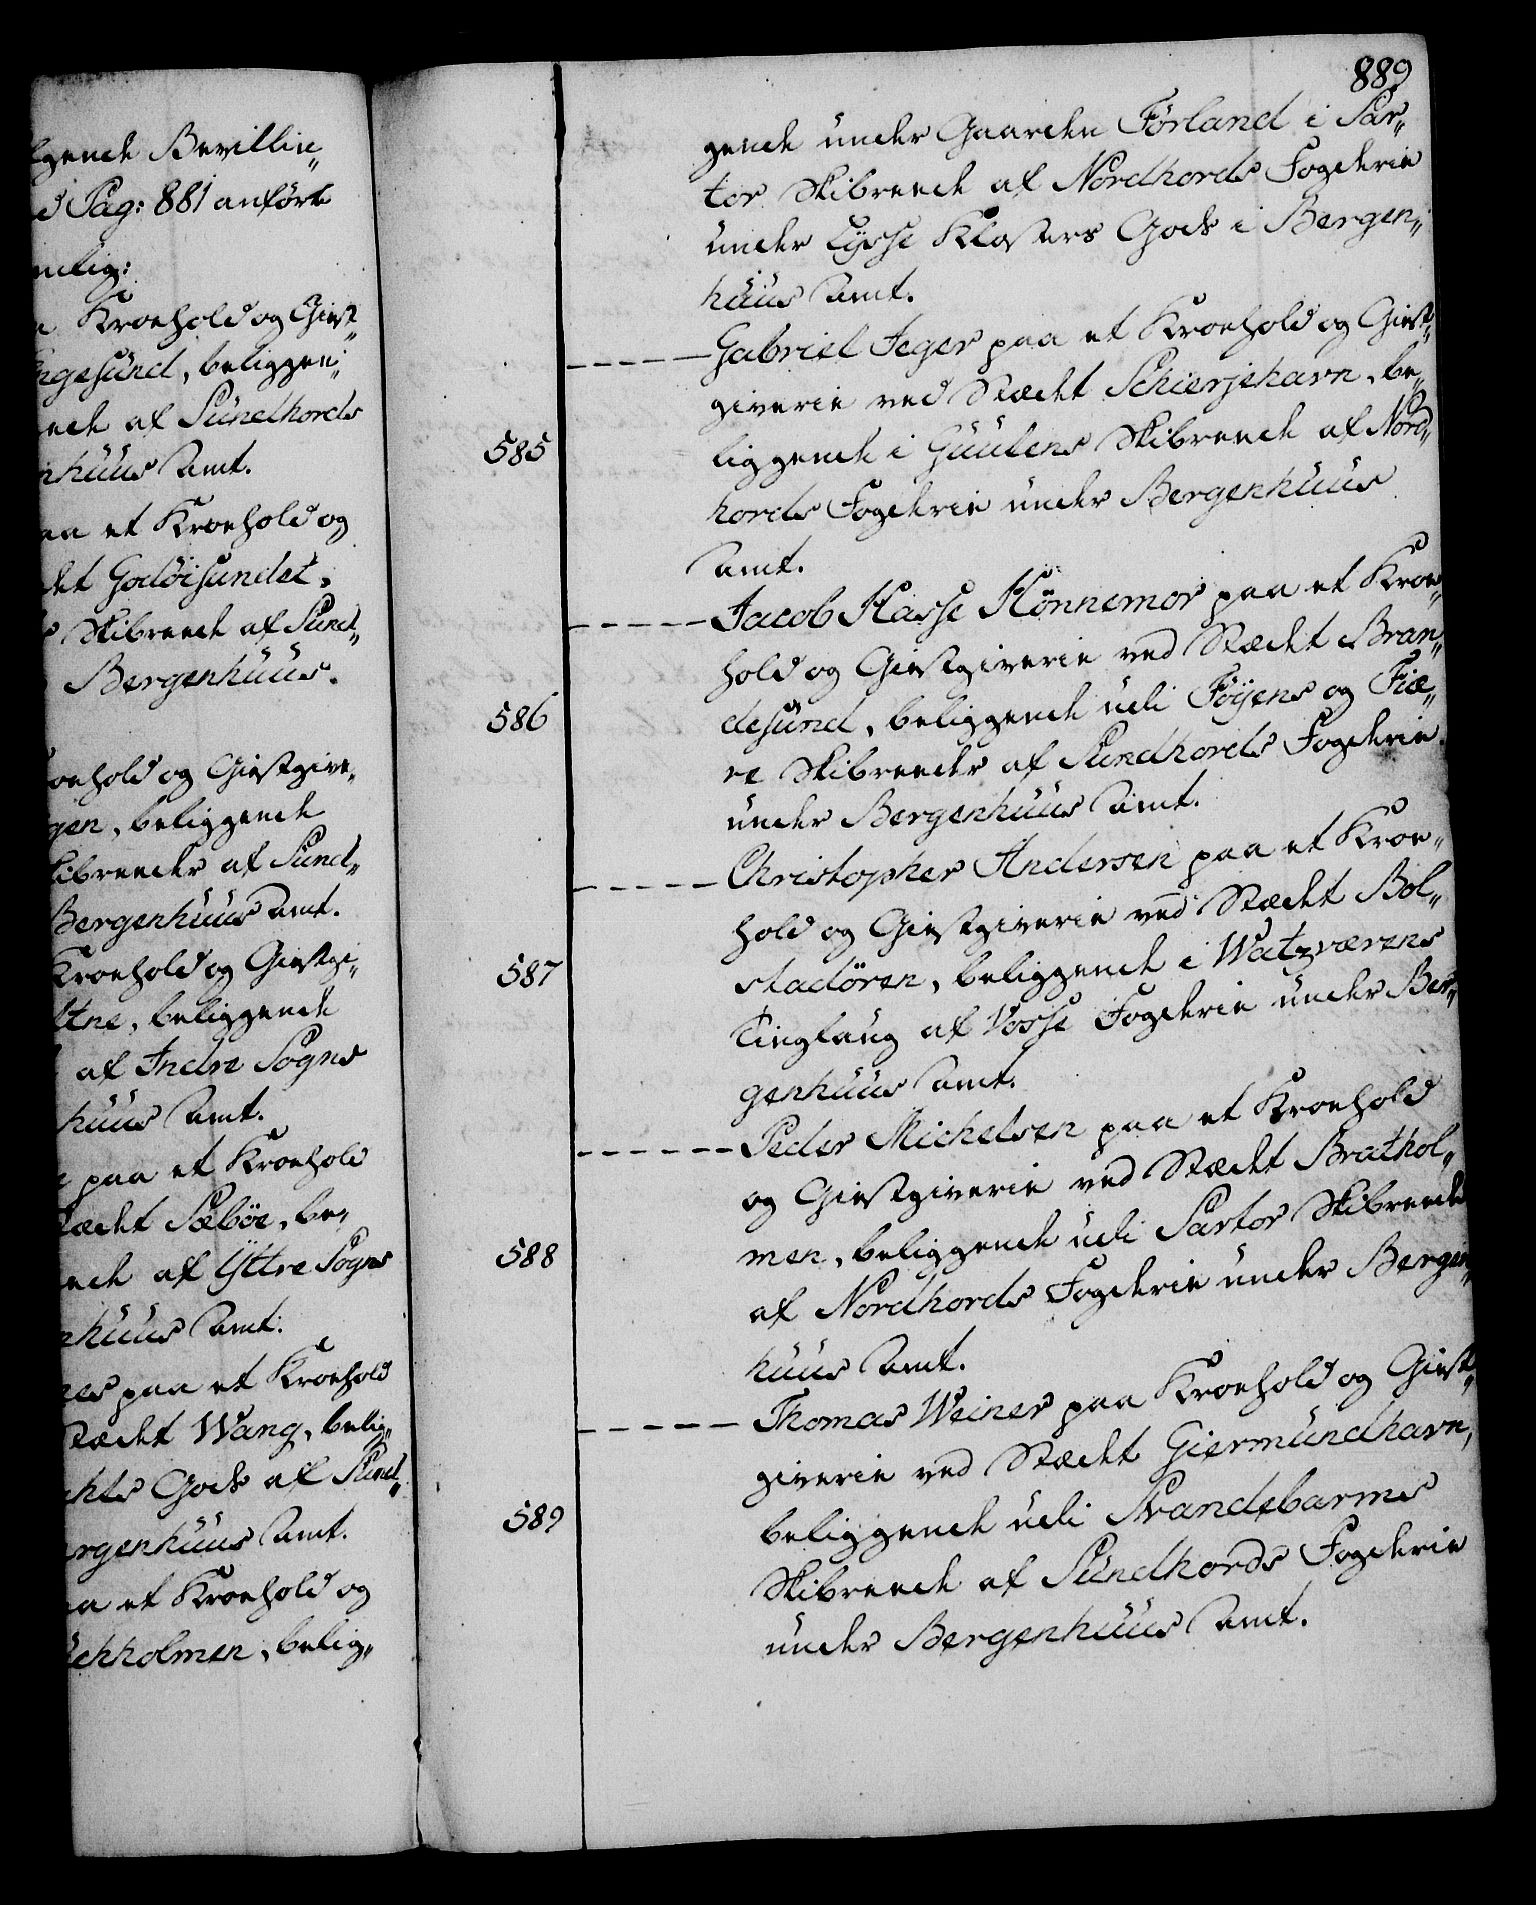 lgende Bevillin„
d Pag: 881 anførte
mlig:
a Kroehold og Giest„
ngesund, beliggen„
ende af Sundhords
nhuus Amt.
aa et Kroehold og
det Godöisundet,
s Skibreede af Sund„
Bergenhuus.
oehold og Giestgive„
gen, beliggende
kibreeder af Sund„
Bergenhuus Amt.
Kroehold og Giestgi„
ltne, beliggende
af Indre Sogns
huus Amt.
paa et Kroehold
tædet Sæböe, be„
eede af Yttre Sogns
nhuus Amt:
nes paa et Kroehold
Stædet Wang, belig„
chts Gods af Sund„
ergenhuus Amt.
aa et Kroehold og
chholmen, belig„
889
gende under Gaarden Förland i Sar„
tor Skibreede af Nordhords Fogderie
under Lysse Klosters Gods i Bergen„
huus Amt.
585 Gabriel Jeger paa et Kroehold og Giest„
giverie ved Stædet Schierjehavn, be„
liggende i Guulens Skibreede af Nord„
hords Fogderie under Bergenhuus
Amt.
586 Jacob Hasse Hönnemor paa et Kroe„
hold og Giestgiverie ved Stædet Bran„
desund, beliggende udi Föyens og Fiæ„
re Skibreeder af Sundhords Fogderie
under Bergenhuus Amt.
587 Christopher Andersen paa et Kroe„
hold og Giestgiverie ved Stædet Bol„
stadören, beliggende i Watzværens
Tinglaug af Vosse Fogderie under Ber„
genhuus Amt.
588 Peder Michelsen paa et Kroehold
og Giestgiverie ved Stædet Brathol„
men, beliggende udi Sartor Skibreede
af Nordhords Fogderie under Bergen„
huus Amt.
589 Thomas Weiner paa Kroehold og Giest„
giverie ved Stædet Giermundhavn,
beliggende udi Strandebarms
Skibreede af Sundhords Fogderie
under Bergenhuus Amt.